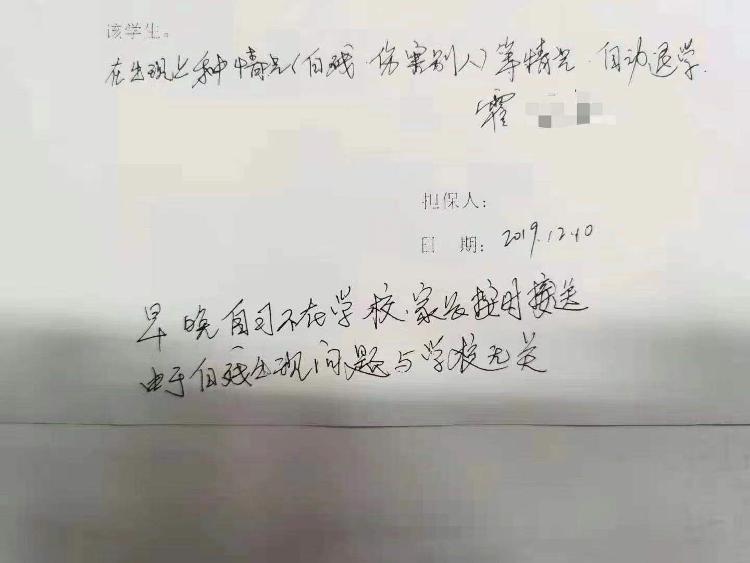 该学生。
在出现上种情况(自残·伤害别人)等情况·自动退学.
霍
担保人:
日 期: 2019.12.10
早晚自习不在学校.家长按时接送
由于自残出现问题与学校无关